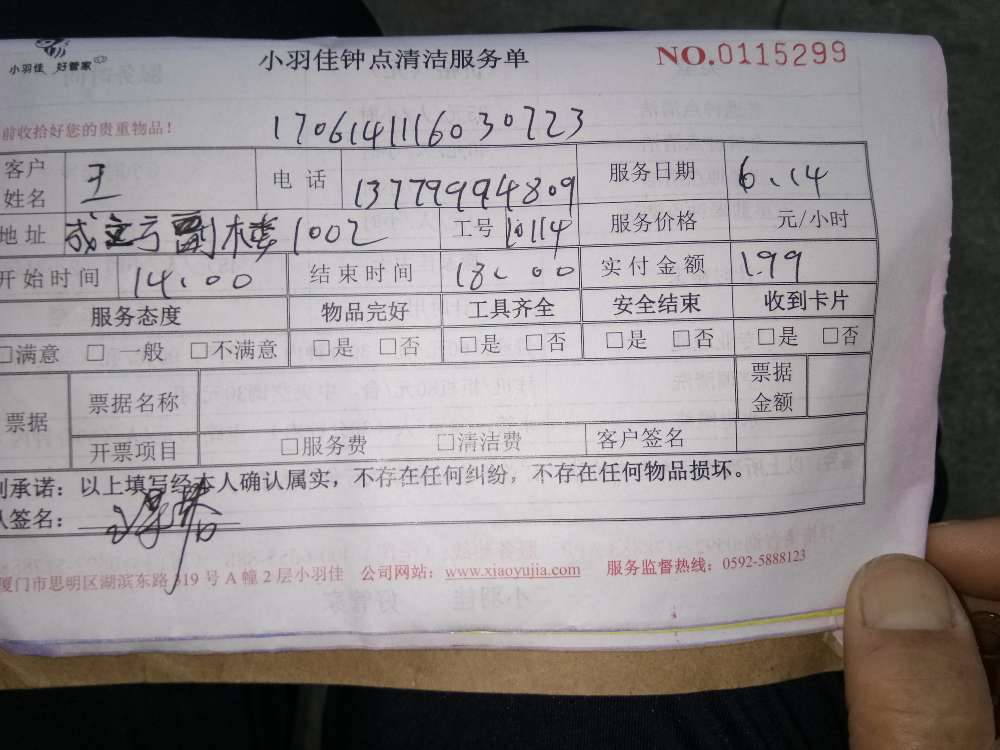 小羽佳 好管家
小羽佳钟点清洁服务单
NO.0115299
前收拾好您的贵重物品！
1706141116030723
客户姓名 王 电话 13779994809 服务日期 6.14
地址 副楼1002 工号 10114 服务价格 元/小时
开始时间 14:00 结束时间 18:00 实付金额 199
服务态度 物品完好 工具齐全 安全结束 收到卡片
□满意 □一般 □不满意 □是 □否 □是 □否 □是 □否 □是 □否
票据 票据名称 票据金额
开票项目 □服务费 □清洁费 客户签名
承诺：以上填写经本人确认属实，不存在任何纠纷，不存在任何物品损坏。
人签名：
厦门市思明区湖滨东路319号A幢2层小羽佳 公司网站：www.xiaoyujia.com 服务监督热线：0592-5888123